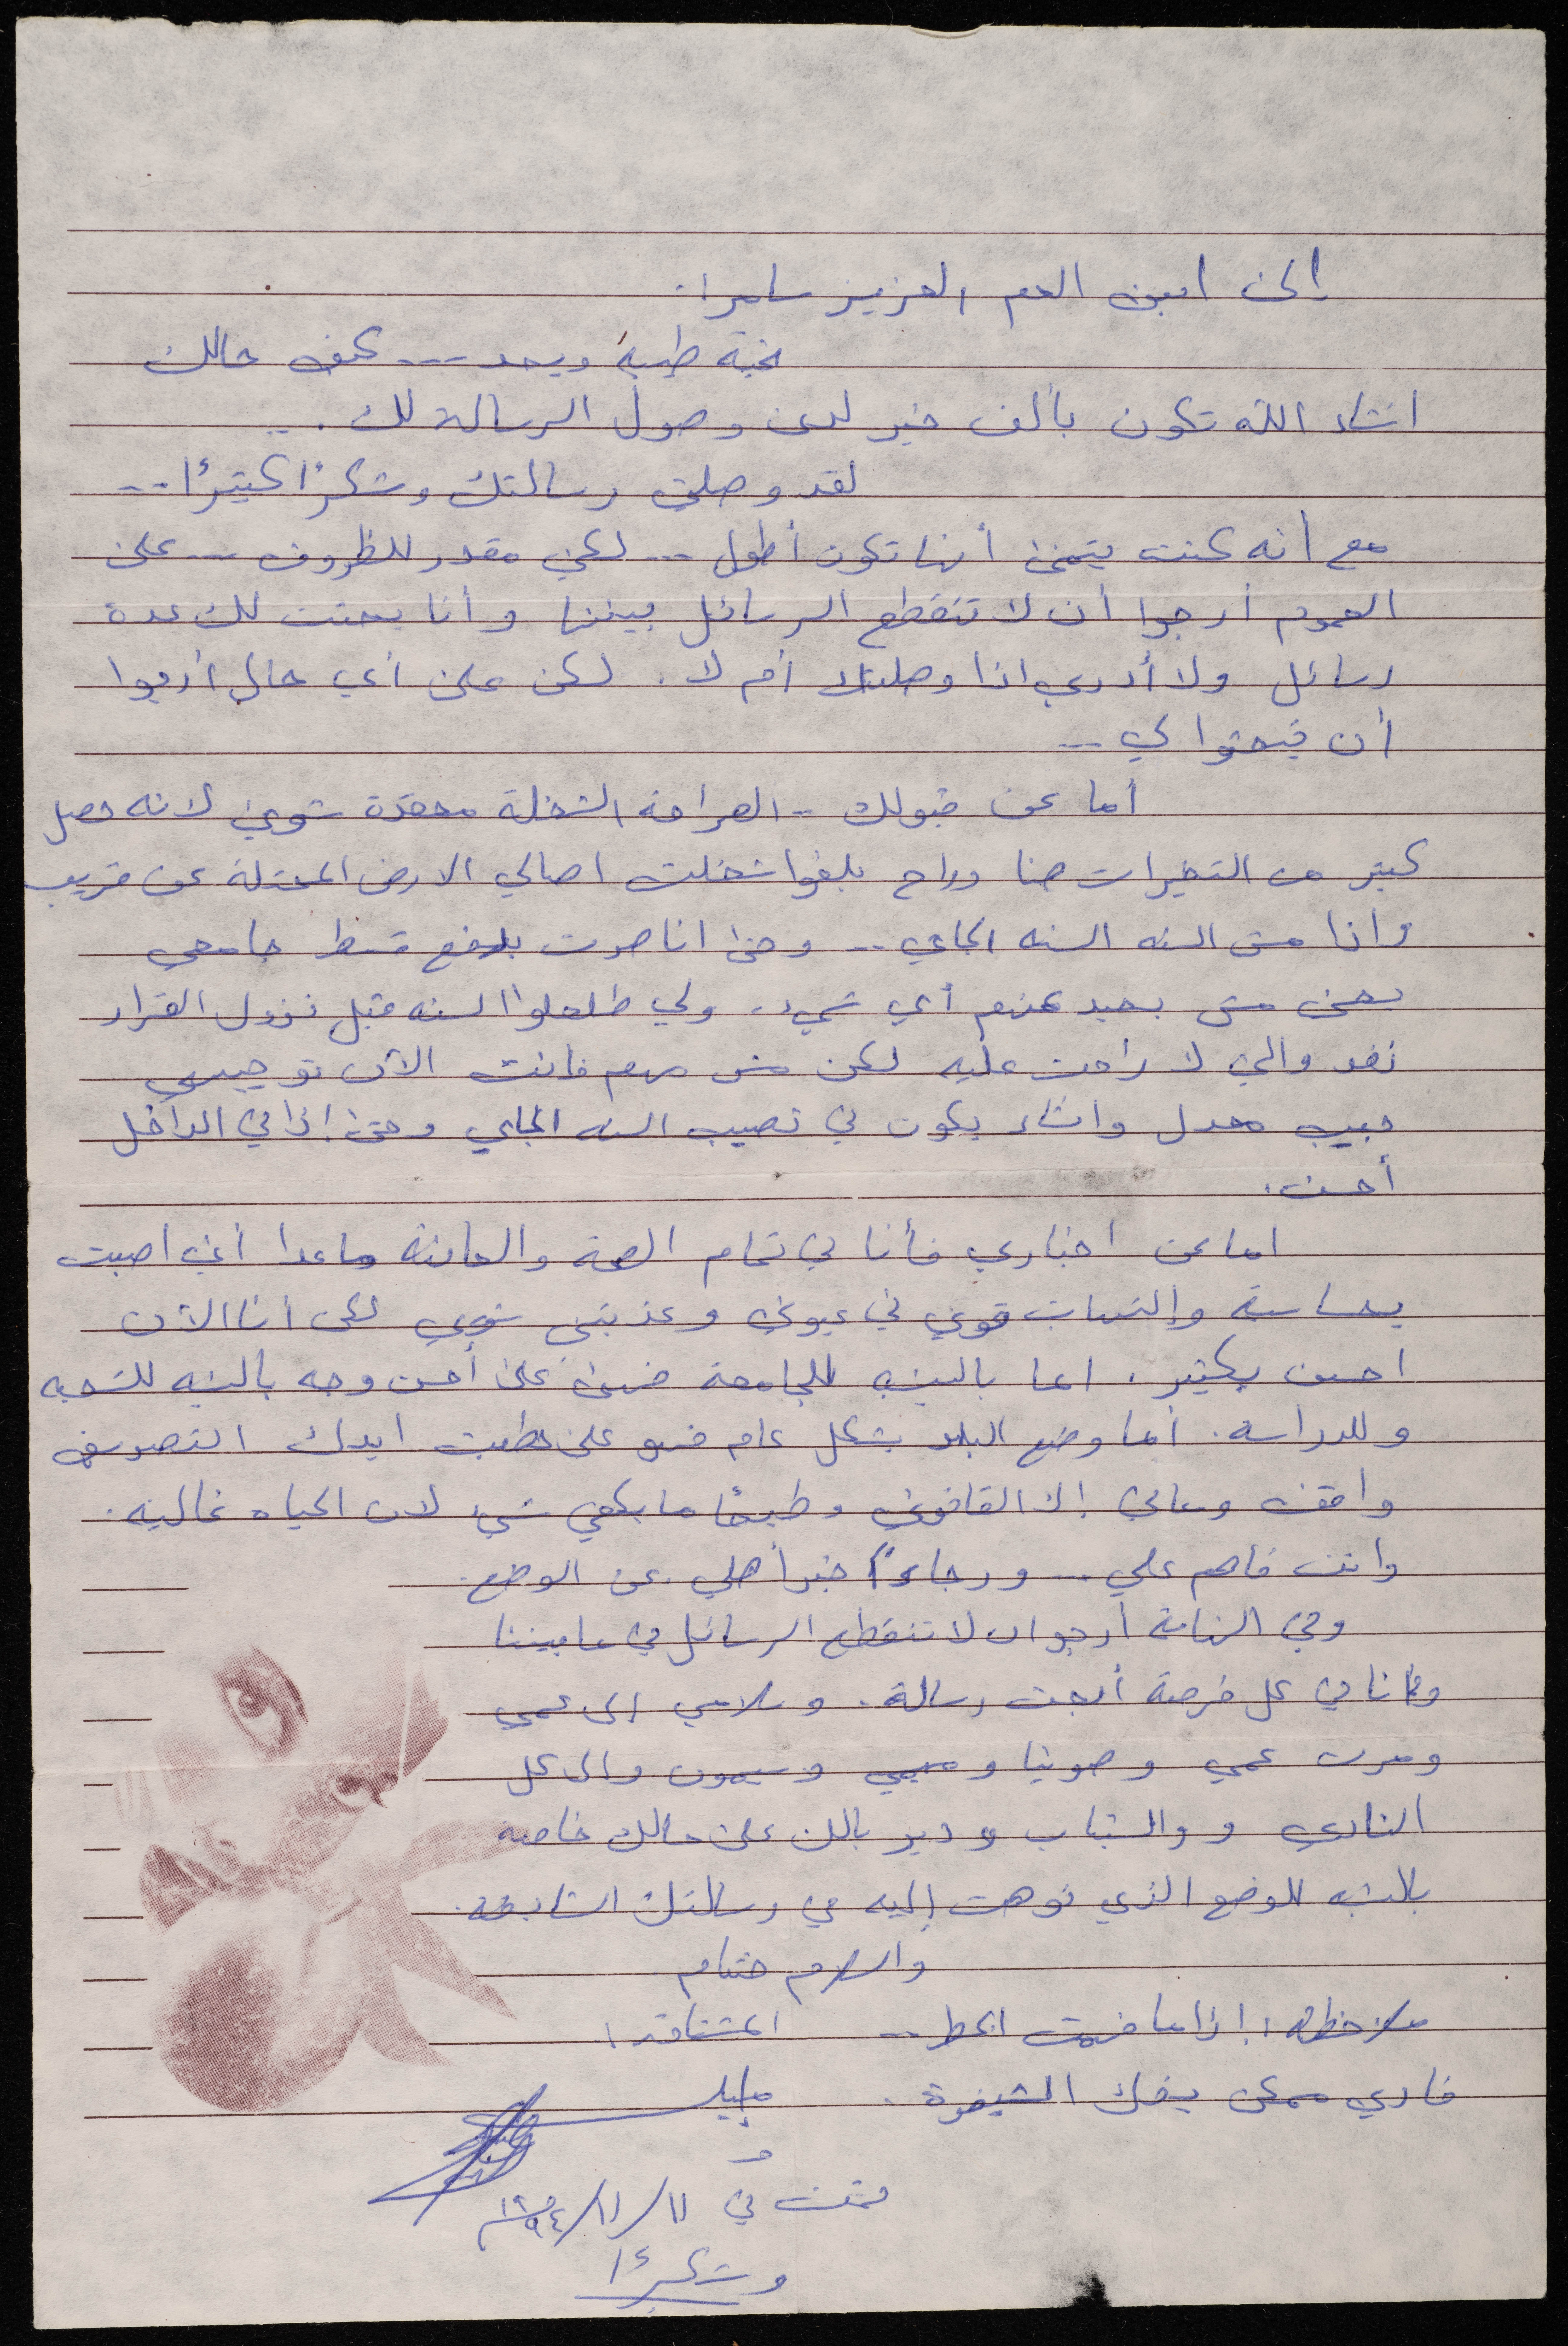 إلى ابن العم العزيز سامر ا.
تحية طيبة وبعد --- كيف حالك
انشاء الله تكون بألف خير لدى وصول الرسالة لك . --
لقد وصلني رسالتك وشكرًا كتيرًا --
مع أنه كنت بتمنى أنها تكون أطول -- لكني مقدر للظروف -- على
العموم أرجوا أن لا تنقطع الرسائل بيننا وأنا بعتت لك عدة
رسائل ولا أدري اذا وصلتك أم لا . لكن على أي حال أرجوا
أن تبعتوا لي --
أما عن قبولك -- الصراحة الشغلة معقدة شوي لانه حصل
كتير من التغيرات هنا وراح يلغوا شغلت اهالي الارض المحتلة عن قريب
واذا مش السنه السنه الجاي -- وحتى انا صرت بدفع قسط جامعي
يعني مش بعيد عنهم أي شيء . ولي طلعوا السنه قبل نزول القرار
نفد والي لا راحت عليه لكن مش مهم فانت الآن توجيهي
جيب معدل وانشاء يكون في نصيب السنه الجاي وحتى إذا في الداخل
أحسن .
اما عن اخباري فأنا في تمام الصحة والعافية ما عدا أني اصبت
بحساسية والتهبات قوي في عيوني وعذبتني شوي لكن أنا الآن
احسن بكتير . اما بالنسبه للجامعة فهي على أحسن وجه بالنسبه للشعبه
وللدراسه . أما وضع البلد بشكل عام فهو على حطيت ايدك التصويف
واقف ومالي إلا القانوني وطبعًا ما بكفي شيء لان الحياه غاليه .
وانت فاهم علي -- ورجاءً خبر أهلي عن الوضع .
وفي النهاية أرجو ان لا تنقطع الرسائل في ما بيننا
وأنا في كل فرصة أبعت رسالة . وسلامي إلى عمي
ومرت عمي وصونيا وميمي وسيمون والى كل
النادي و والشباب ودير بالك على حالك خاصه
بالنسبه للوضع الذي نوهت إليه في رسالتك السابقه .
والسلام ختام
ملاحظه : إذا ما فهمت الخط -- المشتاقد :
فادي ممكن يفك الشيفرة .
تمت في ١١/١١/١٩٩٤م
وشكرًا